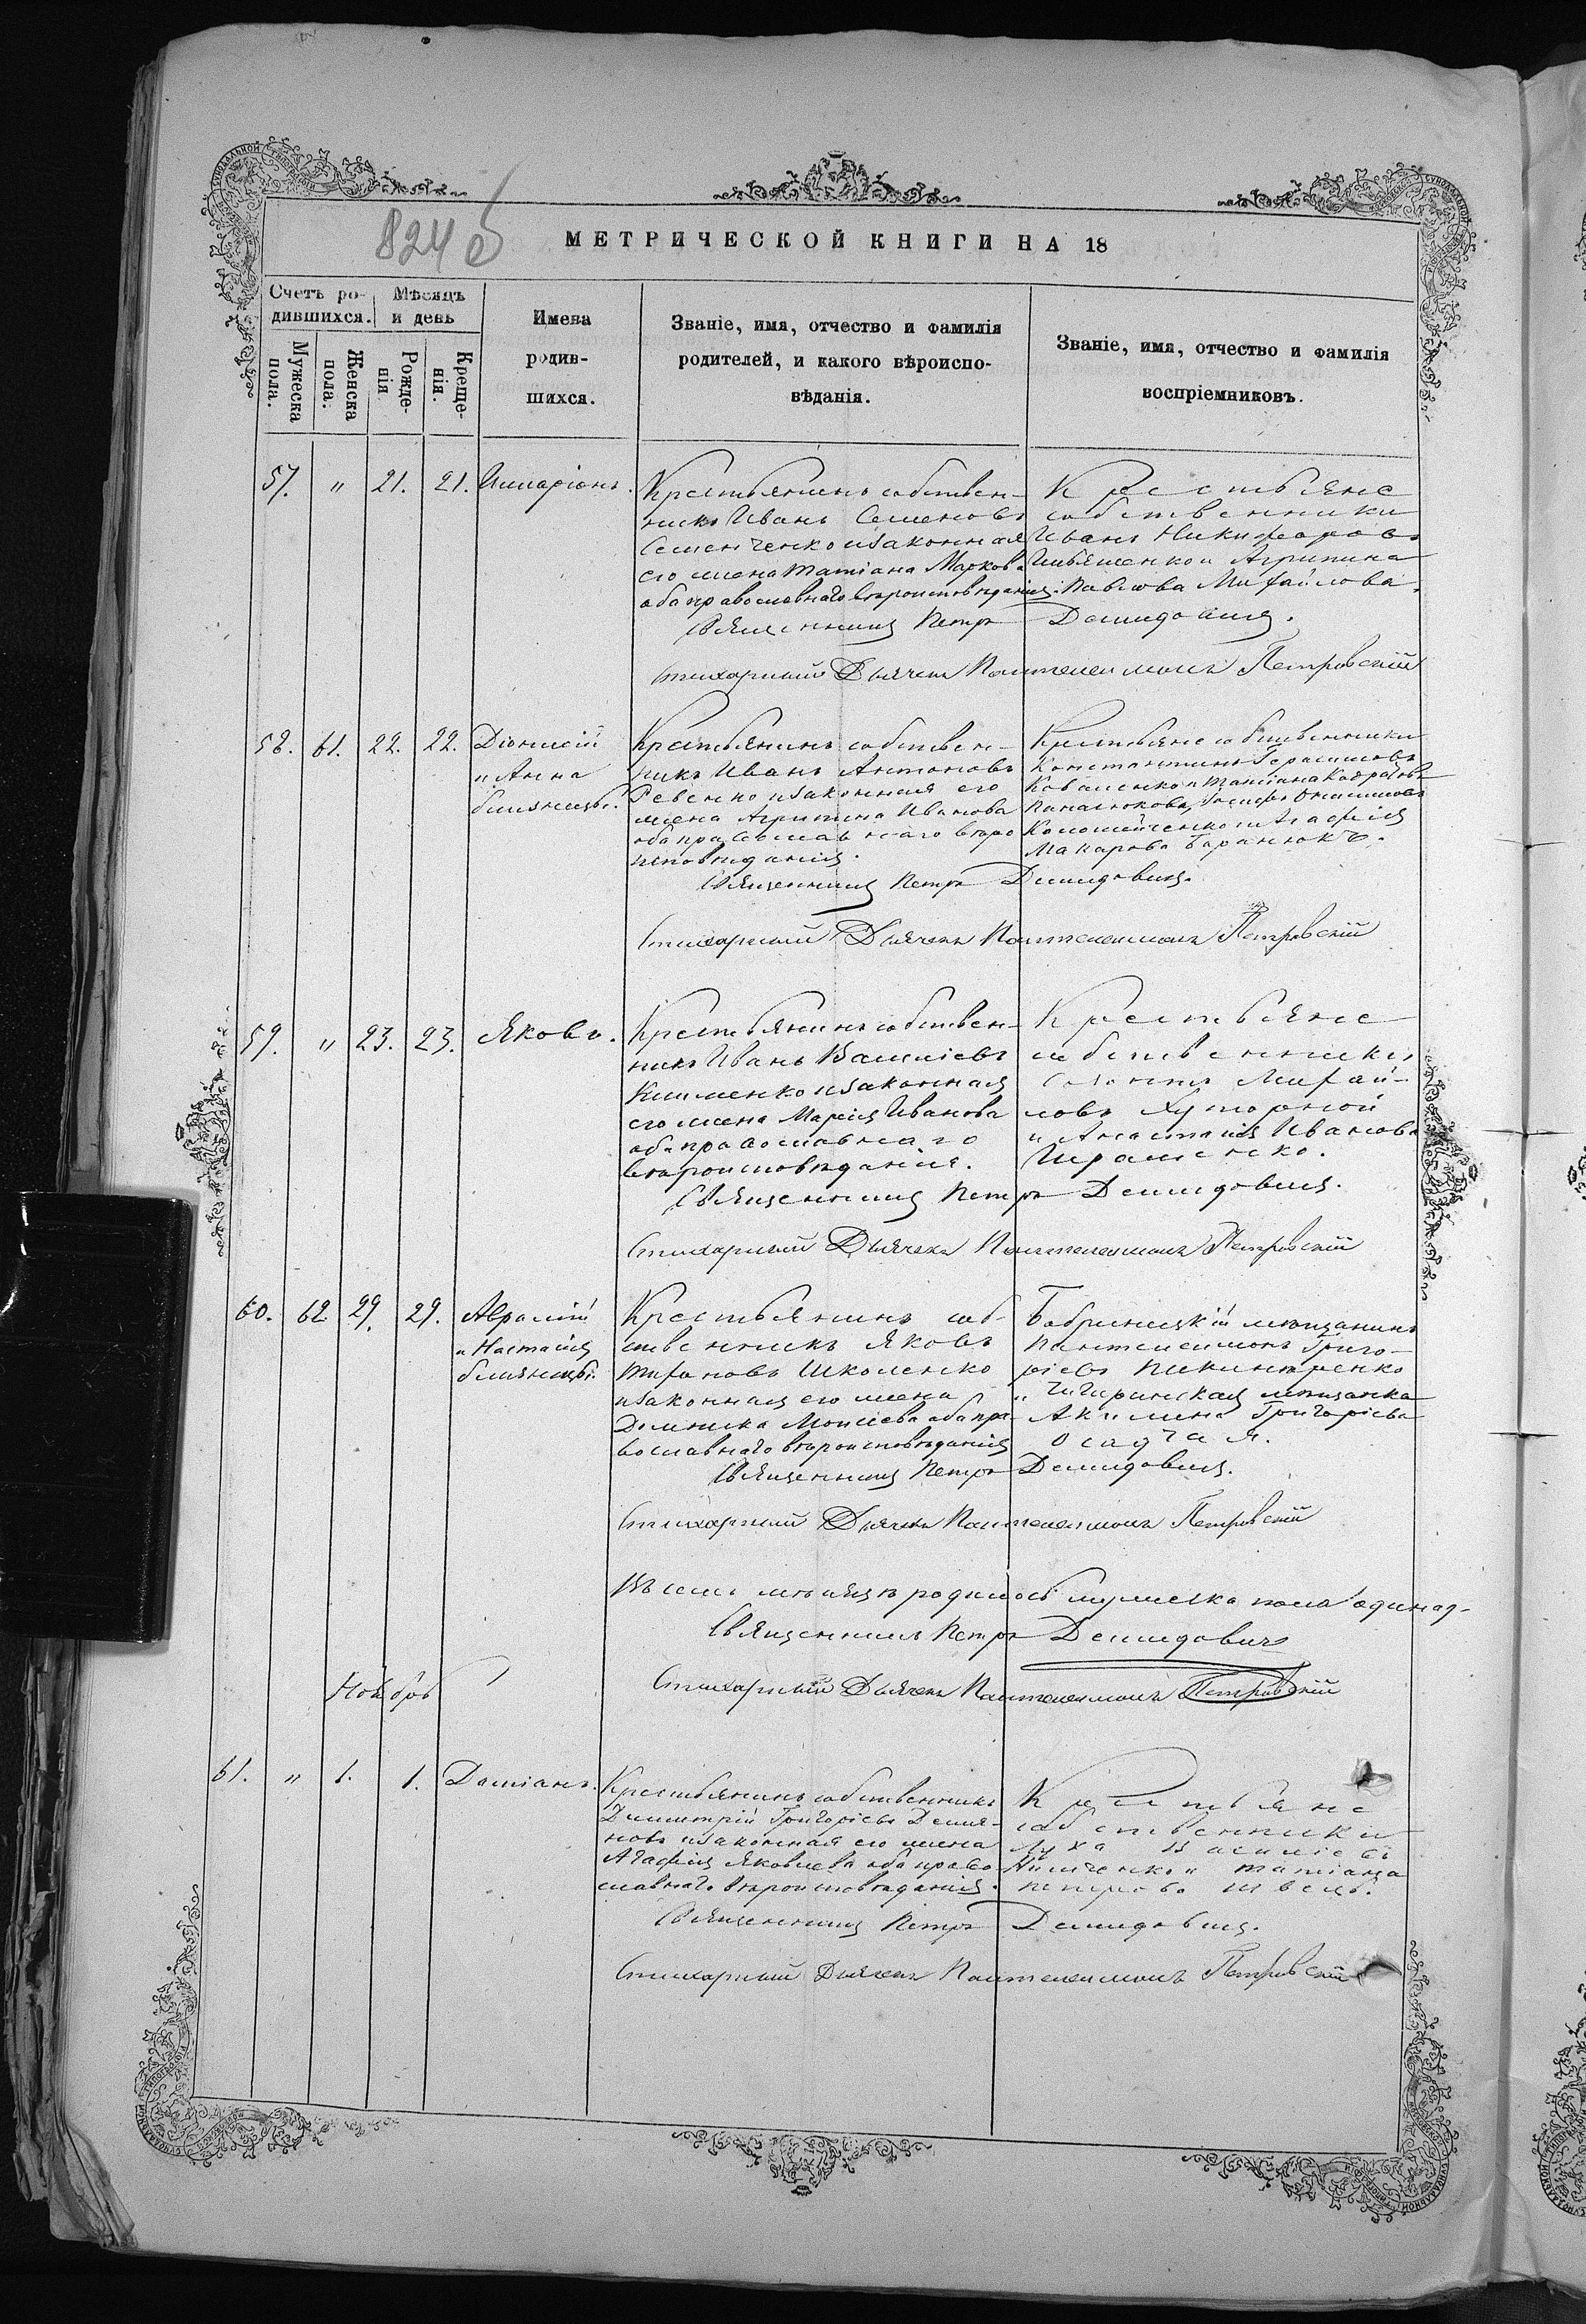 824 об
МЕТРИЧЕСКОЙ КНИГИ НА 18
Счетъ ро-
дившихся.
Мѣсяцъ
и день
Мужеска
пола.
Женска
пола.
Рожде-
нія
Креще-
нія.
Имена
родив-
шихся.
Званіе, имя, отчество и фамилія
родителей, и какого вѣроиспо-
вѣданія.
Званіе, имя, отчество и фамилія
воспріемниковъ.
57. " 21. 21. Иларіонъ.
Крестьянинъ собствен-
никъ Иванъ Семеновъ
Семенченко и законная
его жена Татіана Маркова
оба православнаго вѣроисповѣданія.
Крестьяне
собственники
Иванъ Никифоровъ
Ильяшенко и Агрипина
Павлова Михайлова.
Священникъ Петръ Демидовичъ.
Стихарный Дьячекъ Пантелеимонъ Петровскій
58. 61. 22. 22. Діонисій
и Анна
близнецы.
Крестьянинъ собствен-
никъ Иванъ Антоновъ
Ревенко и законная его
жена Агрипина Иванова
оба православнаго вѣро
исповѣданія.
Крестьяне собственники
Константинъ Герасимовъ
Коваленко и Татіана
Макарова Таранюкъ.
Священникъ Петръ Демидовичъ.
Стихарный Дьячекъ Пантелеимонъ Петровскій
59. " 23. 23. Яковъ.
Крестьянинъ собствен-
никъ Иванъ Василіевъ
Клименко и законная
его жена Марія Иванова
оба православнаго
вѣроисповѣданія.
Крестьяне
собственники
Михай-
ловъ Хуторной
и Анастасія Иванова
Священникъ Петръ Демидовичъ.
Стихарный Дьячекъ Пантелеимонъ Петровскій
60. 62 29. 29. Аврамій
и Настасія
близнецы.
Крестьянинъ соб-
ственникъ Яковъ
Школенко
и законная его жена
Домника Моисеева оба пра-
вославнаго вѣроисповѣданія
Бобринецкій мѣщанинъ
Пантелеимонъ Григо-
ріевъ
и Чигиринская мѣщанка
Акилина Григоріева
Осадчая.
Священникъ Петръ Демидовичъ.
Стихарный Дьячекъ Пантелеимонъ Петровскій
Въ семъ мѣсяцѣ родилось мужеска пола одинад-
Священникъ Петръ Демидовичъ
Стихарный Дьячекъ Пантелеимонъ Петровскій
Ноябрь
61. " 1. 1. Даміанъ.
Крестьянинъ собственникъ
Димитрій Григоріевъ Демья-
новъ и законная его жена
Агафія Яковлева оба право-
славнаго вѣроисповѣданія.
Крестьяне
собственники
Лука Василіевъ
и Татіана
Петрова Швецъ.
Священникъ Петръ Демидовичъ.
Стихарный Дьячекъ Пантелеимонъ Петровскій